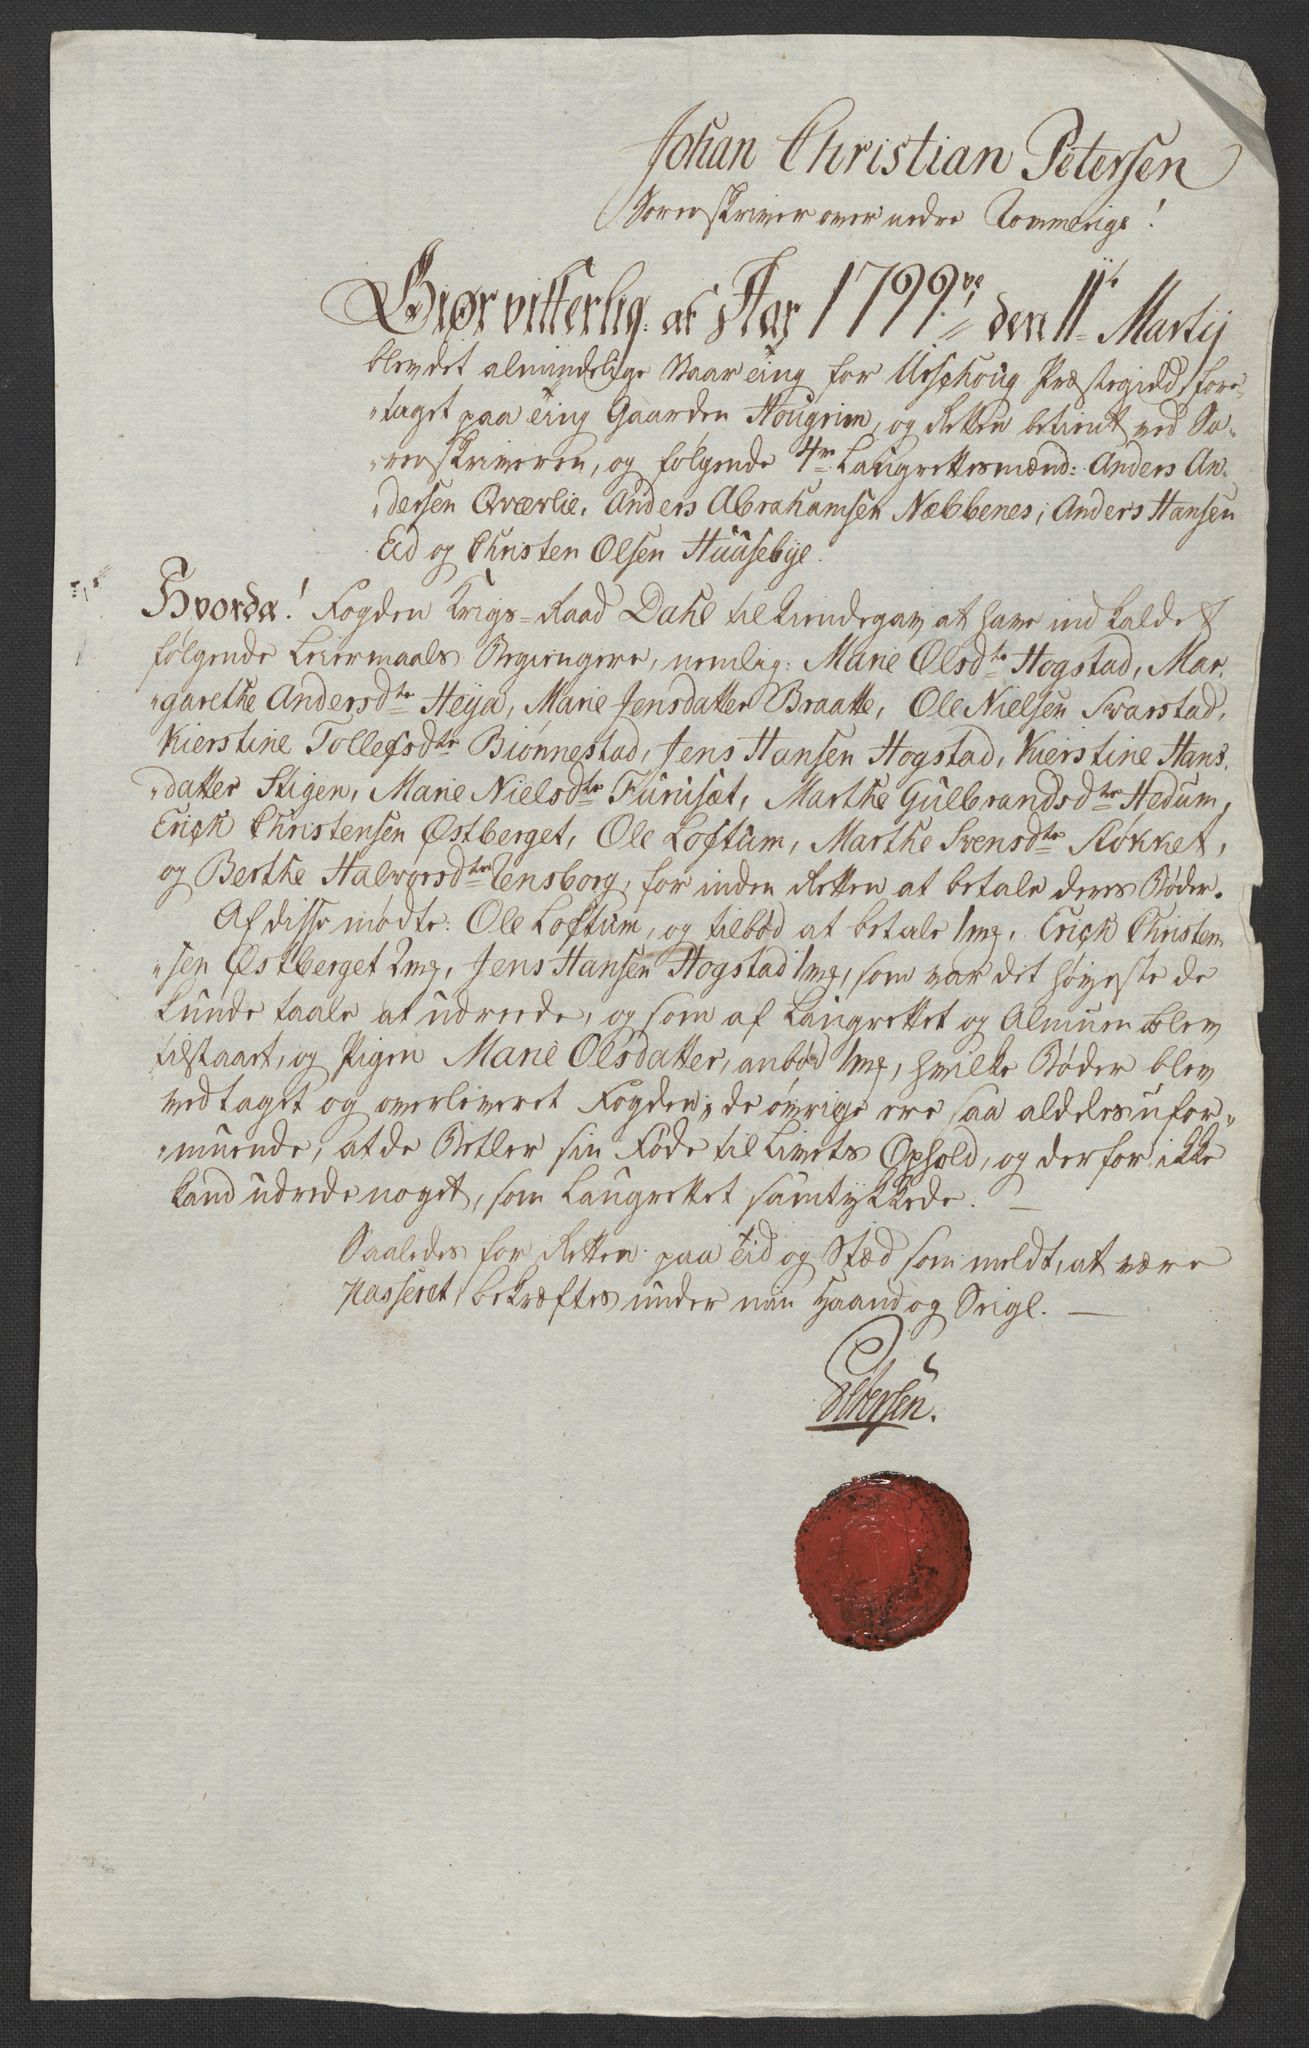 Johan Christian Petersen
Sorenskriver over nedre Rommerige!
Giør vitterlig: at Aar 1799ve den 11te Martij
blev det almindelige Vaar Ting for Urschoug Præstegield, fore-
"taget paa Ting Gaarden Hougrim, og Retten betient ved So-
"renskriveren, og følgende 4re Laugrettesmænd: Anders An-
"dersen Qværlie, Anders Abrahamsen Næbbenes, Anders Hansen
Eid og Christen Olsen Huusebye.
Hvorda! Fogden Krigs-Raad Dahl tilkiendegav at have indkaldet
følgende Leiermaals Begiengere, nemlig: Marie Olsdtr Hogstad, Mar-
"garethe Andersdtr Heya, Marie Jensdatter Braatte, Ole Nielsen Svarstad,
Kierstine Tollefsdtr Biønnestad, Jens Hansen Hogstad, Kierstine Hans-
"datter Stigen, Marie Nielsdtr Furuset, Marthe Gulbrandsdtr Hedum,
Erich Christensen Østberget, Ole Loftum, Marthe Svensdtr Kokket,
og Berthe Halvorsdtr Tensborg, for inden Retten at betale deres Bøder.
Af disse mødte: Ole Loftum, og tilbød at betale 1 mk, Erich Christen-
"sen Østberget 2 mk, Jens Hansen Hogstad 1 mk, som var det høyeste de
kunde taale at udreede, og som af Laugrettet og Almuen blev
tilstaaet, og Pigen Marie Olsdatter, anbød 1 mk, hvilke Bøder blev
vedtaget og overleveret Fogden; de øvrige ere saa aldeles ufor-
"muende, at de Betler sin Føde til Livets Ophold, og derfor ikke
kand udrede noget, som Laugrettet samtykkede. —
Saaledes for Retten paa Tid og Stæd som meldt, at være
Passeret, bekræftes under min Haand og Seigl. —
Petersen.